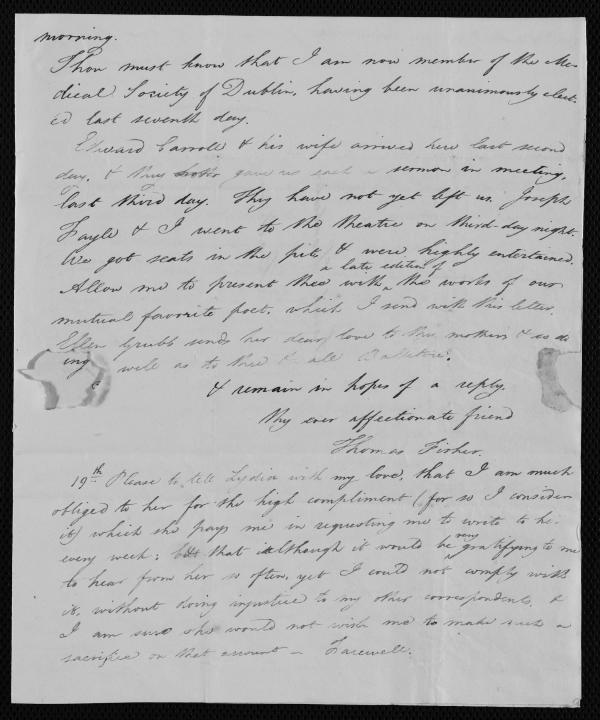 morning.
Thou must know that I am now member of the Me-
dical Society of Dublin, having been unanimously elect-
ed last seventh day.
Edward Carroll & his wife arrived here last second
day, & they gave us each a sermon in meeting,
last third day. They have not yet left us. Joseph
Fayle & I went to the theatre on third-day night.
We got seats in the pit & were highly entertained.
Allow me to present thee with a late edition of the works of our
mutual favorite poet, which I send with this letter.
Ellen Grubb sends her dear love to thy mother & is do
ing well as to thee & all
& remain in hopes of a reply
thy ever affectionate friend
Thomas Fisher.
19th Please to tell Lydia with my love, that I am much
obliged to her for the high compliment (for so I consider
it) which she pays me in requesting me to write to her
every week; that although it would be very gratifying to me
to hear from her so often, yet I could not comply with
it, without doing injustice to my other correspondents, &
I am sure she would not wish me to make such a
sacrifice on that account – Farewell.